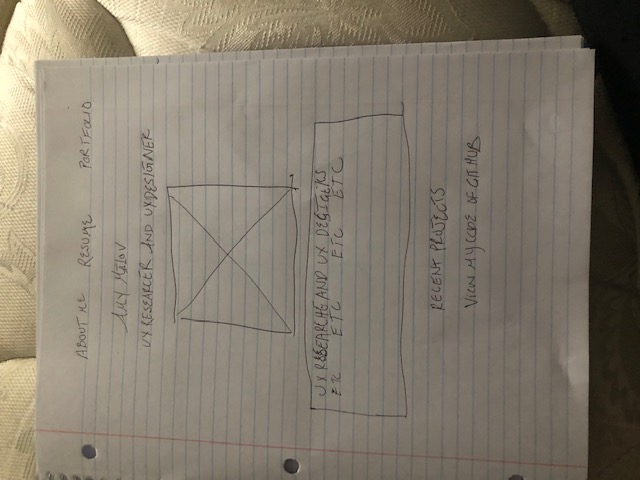 ABOUT ME RESUME PORTFOLIO
AMY MALOV
UX RESEARCER AND UXDESIGNER
UX RESEARCHE AND UX DEGIGERS
ETC ETC ETC ETC
RECENT PROJECTS
VIEW MY CODE OF GITHUB